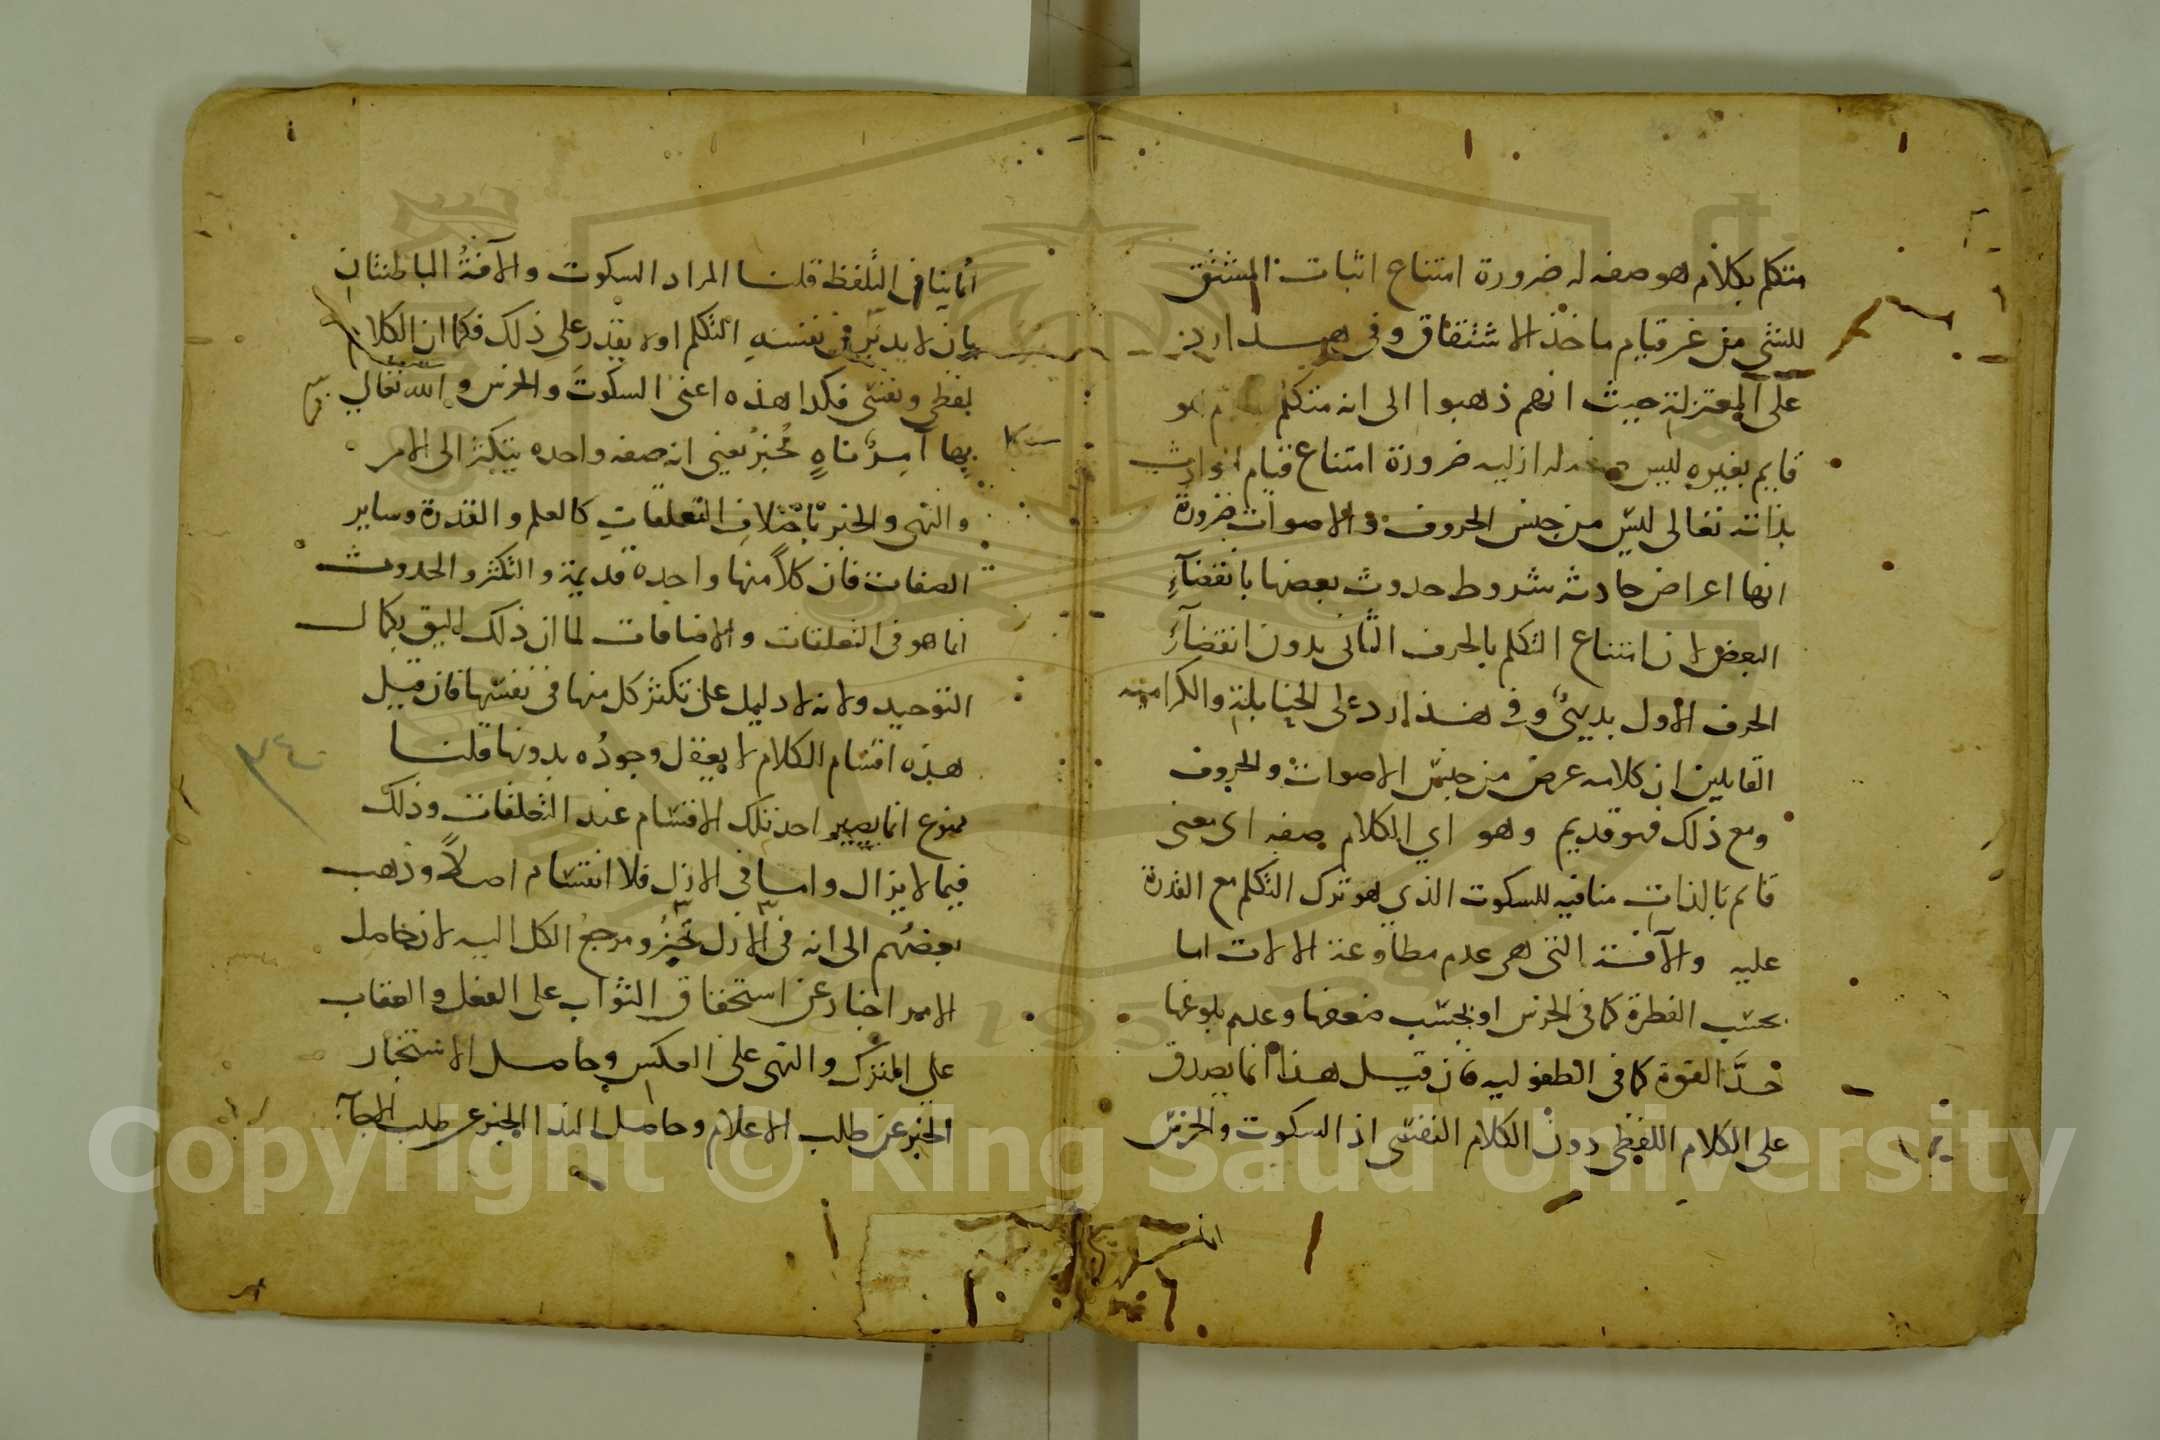 متكلم بكلام هو صفه له ضرورة امتناع اثبات المشتق
للشي من غير قيام ماخذ الاشتقاق وفي هذا رد
على المعتزلة حيث انهم ذهبوا الى انه متكلم بكلام هو
قايم بغيره ليس صفه له ازليه ضرورة امتناع قيام الحوادث
بذاته تعالى ليس من جنس الحروف والاصوات ضرورة
انها اعراض حادثه مشروط حدوث بعضها بانقضآءِ
البعض لان امتناع التكلم بالحرف الثاني بدون انقضآء
الحرف الاول بديهي وفي هذا رد على الحنابلة والكراميه
القايلين ان كلامه عرض من جنس الاصوات والحروف
ومع ذلك فهو قديم وهو اي الكلام صفه اى معنى
قايم بالذات منافيه للسكوت الذي هو ترك التكلم مع القدرة
عليه والآفة التى هى عدم مطاوعة الالات اما
بحسب الفطرة كما فى الخرس او بحسب ضعفها وعدم بلوغها
حدَّ القوة كما فى الطفوليه فان قيل هذا انما يصدق
على الكلام اللفظى دون الكلام النفسى اذ السكوت والخرس
انما
انما ينافى التلفظ قلنا المراد السكوت والآفة الباطنتان
بان لا يدبر فى نفسه التكلم او لا يقدر على ذلك فكما ان الكلام
لفظى ونفسى فكذا هذه اعنى السكوت والخرس والله تعالى متكلم
بها آمرٌ ناهٍ مُخبرٌ يعنى انه صفه واحده يتكثر الى الامر
والنهى والخبر باختلاف التعلقات كالعلم والقدرة وساير
الصفات فان كلاً منها واحدة قديمة والتكثر والحدوث
انما هو فى التعلقات والاضافات لما ان ذلك اليق بكمال
التوحيد ولانه لا دليل على تكثر كل منها فى نفسها فان قيل
هذه اقسام الكلام لا يعقل وجودُه بدونها قلنا
ممنوع انما يصير احد تلك الاقسام عند التعلقات وذلك
فيما لا يزال واما فى الازل فلا انقسام اصلاً وذهب
بعضهم الى انه فى الازل خبرٌ ومرجع الكل اليه لان حاصل
الامر اخبار عن استحقاق الثواب على الفعل والعقاب
على الترك والنهى على العكس وحاصل الاستخبار
الخبر عن طلب الاعلام وحاصل الندا الخبر عن طلب الاجابة
٣٤
Copyright © King Saud University
1957